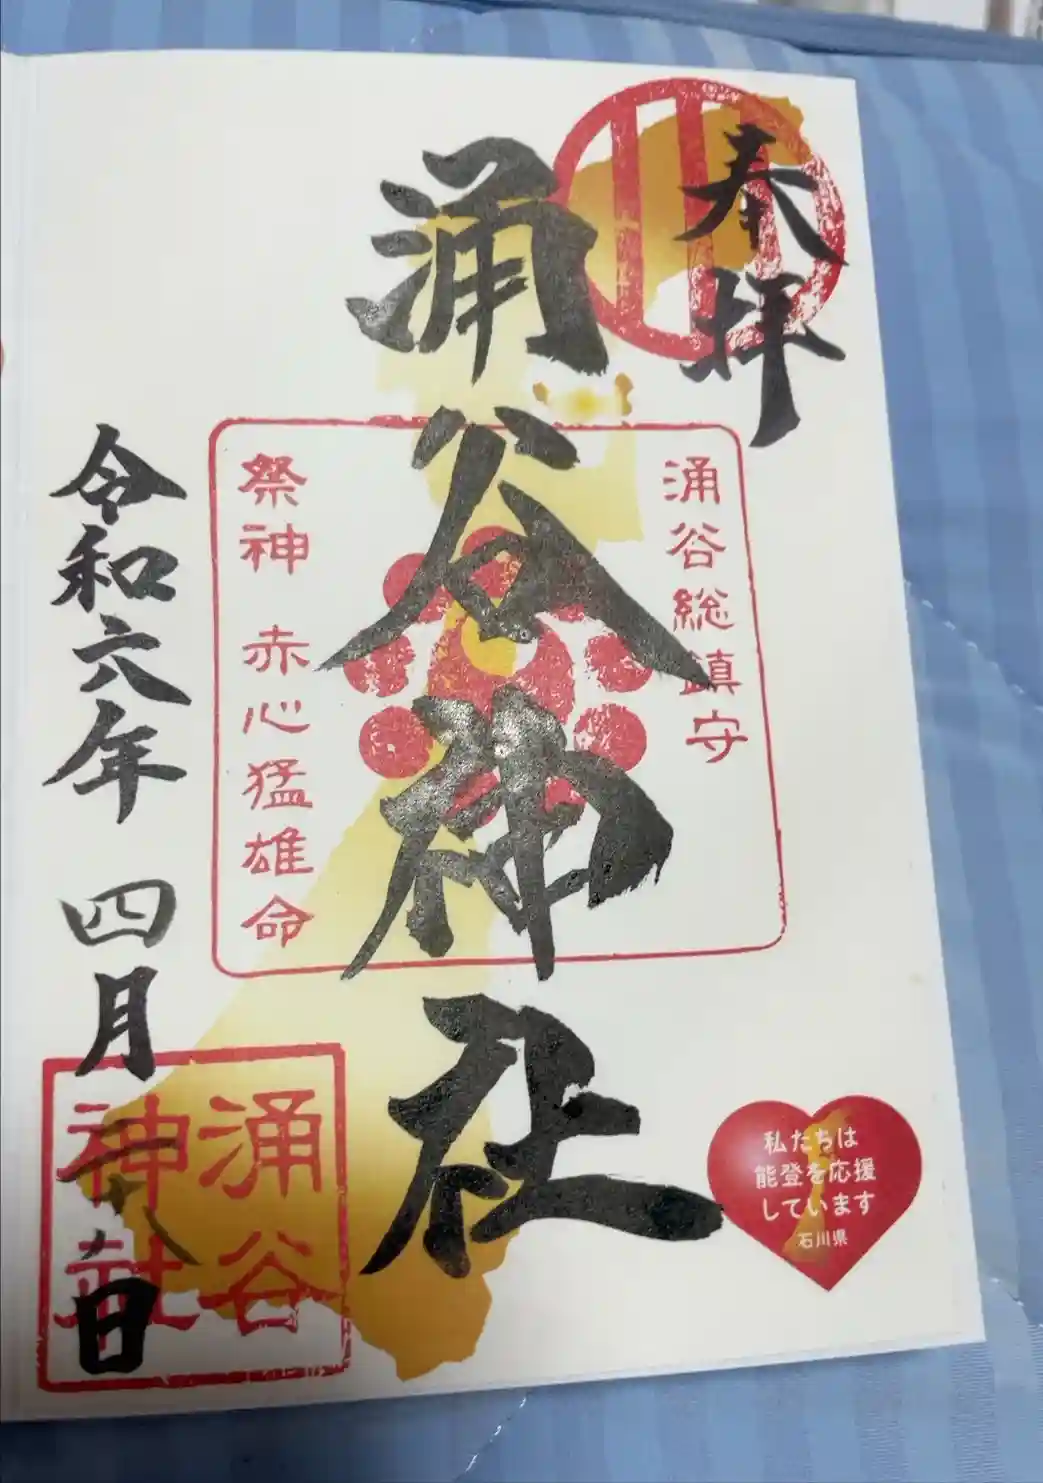 奉拝
涌谷総鎮守
涌谷神社
祭神 赤心猛雄命
令和六年 四月 十八日
涌谷
神社
私たちは
能登を応援
しています
石川県